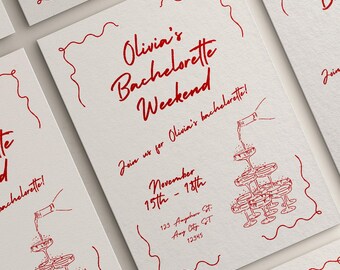 Olivia's
Bachelorette
Weekend
Join us for Olivia's bachelorette!
November
15th - 18th
123 Anywhere St.
Any City ST
12345
bachelorette!